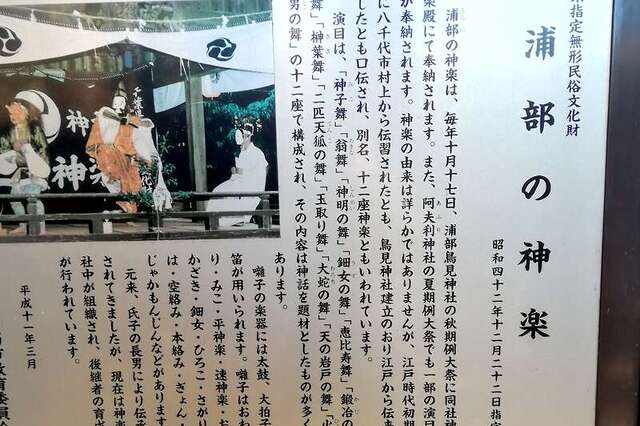 県指定無形民俗文化財
浦部の神楽
昭和四十二年十二月二十二日指定
浦部の神楽は、毎年十月十七日、浦部鳥見神社の秋期例大祭に同社神
楽殿にて奉納されます。また、阿夫利神社の夏期例大祭でも一部の演目
が奉納されます。神楽の由来は詳らかではありませんが、江戸時代初期
に八千代市村上から伝習されたとも、鳥見神社建立のおり江戸から伝来
したとも口伝され、別名、十二座神楽ともいわれています。
演目は、「神子舞」「翁舞」「神明の舞」「鈿女の舞」「恵比寿舞」「鍛冶の
舞」「榊葉舞」「二匹天狐の舞」「玉取り舞」「大蛇の舞」「天の岩戸の舞」「火
男の舞」の十二座で構成され、その内容は神話を題材としたものが多く
あります。
囃子の楽器には太鼓、大拍子
笛が用いられます。囃子はおね
り・みこ・平神楽、速神楽・お
かざき・鈿女・ひろこ・さがり
は・空絡み・本絡み・ぎょん・
じゃかもんじんなどがあります
元来、氏子の長男により伝承
されてきましたが、現在は神楽
社中が組織され、後継者の育成
が行われています。
平成十一年三月
市教育委員会
神楽
神楽